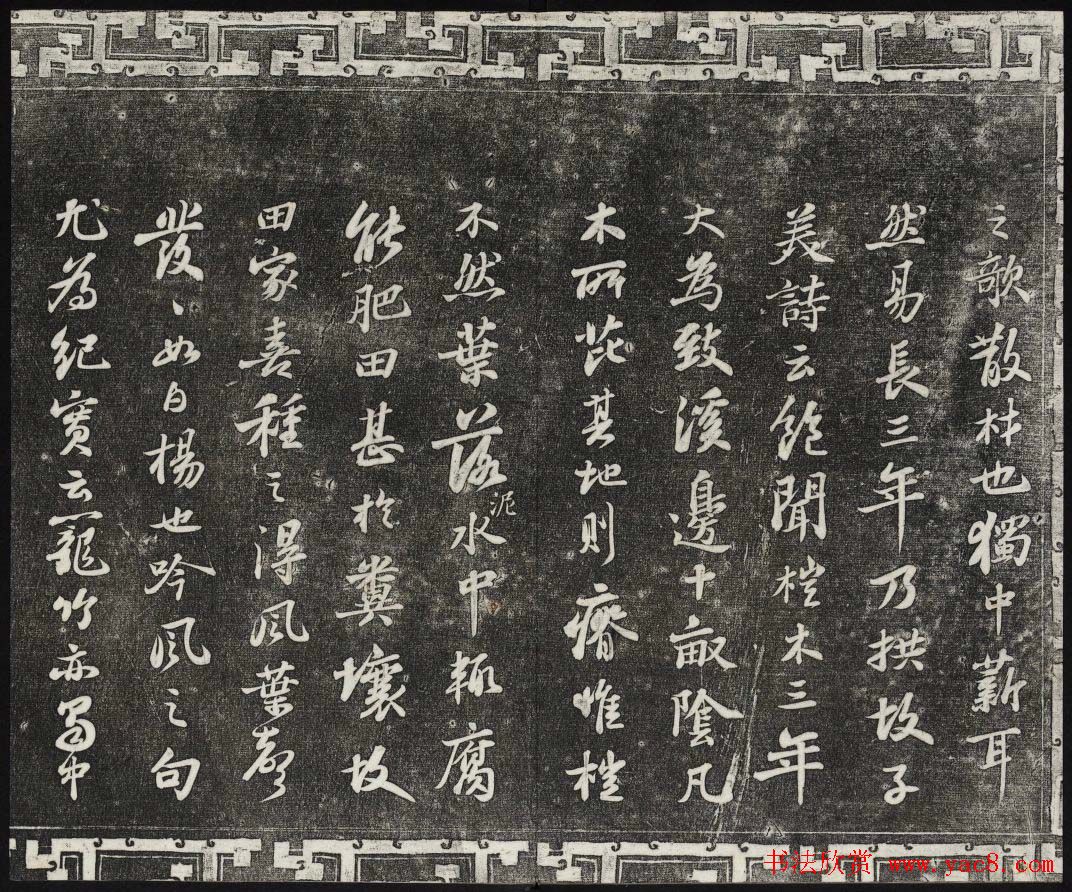 之欹散材也獨中薪耳
然易長三年乃拱故子
美詩云飽聞榿木三年
大為致溪邊十畝陰凡
木所芘其地則瘠惟榿
不然葉落泥水中輒腐
能肥田甚於糞壤故
田家喜種之得風葉聲
發〻如白楊也吟風之句
尤為紀實云龍竹亦蜀中
书法欣赏 www.yac8.com